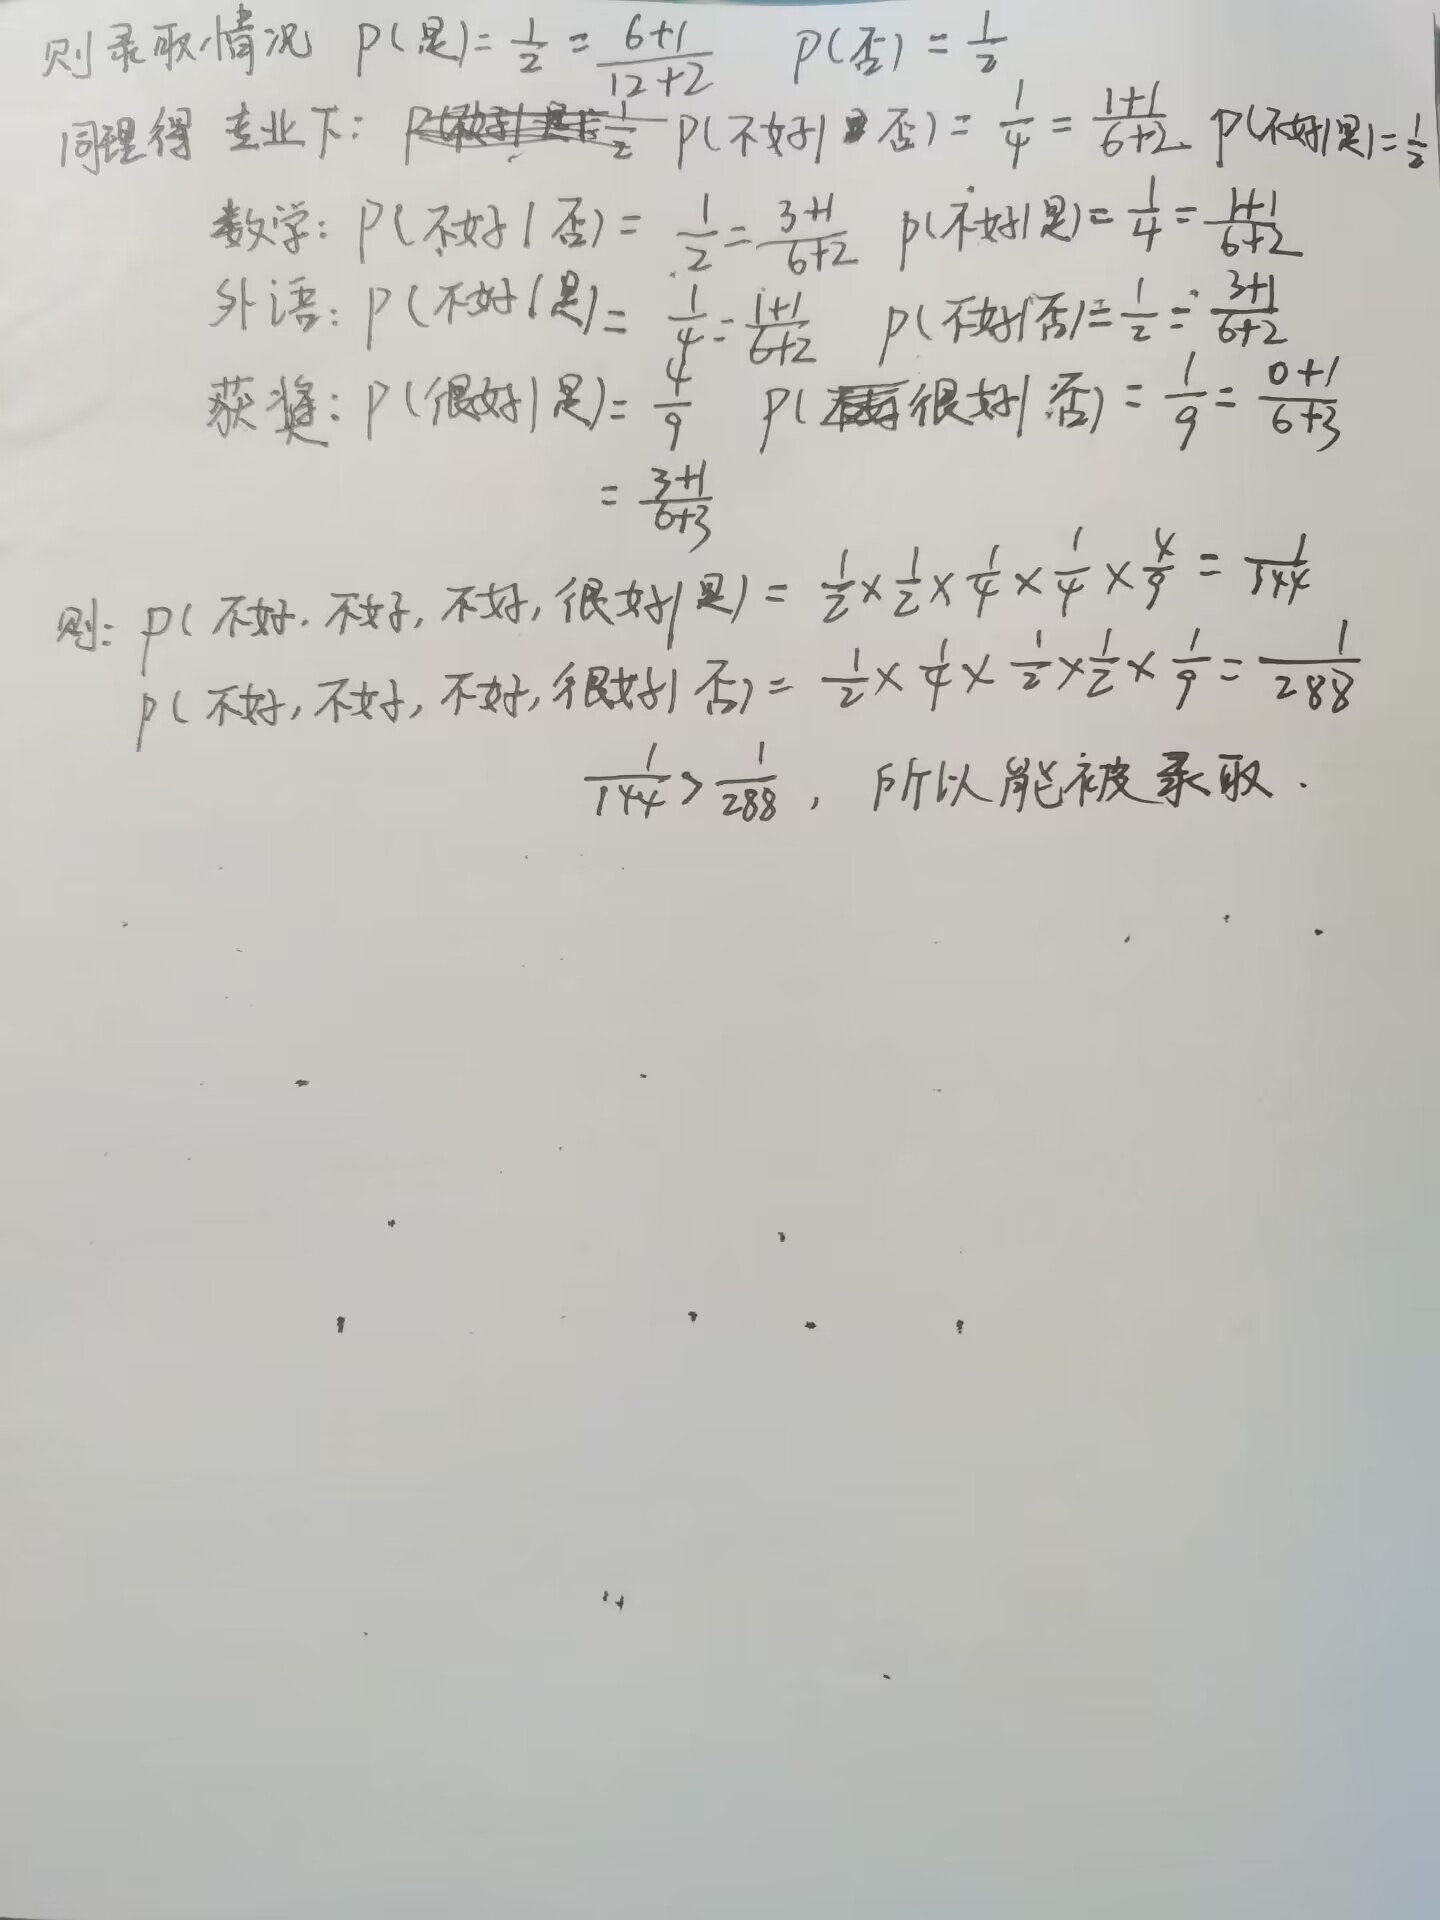 则录取情况 P(是)=1/2=(6+1)/(12+2) P(否)=1/2
同理得 专业下: P(不好|否)=1/4=(1+1)/(6+2) P(不好|是)=1/2
数学: P(不好|否)=1/2=(3+1)/(6+2) P(不好|是)=1/4=(1+1)/(6+2)
外语: P(不好|是)=1/4=(1+1)/(6+2) P(不好|否)=1/2=(3+1)/(6+2)
获奖: P(很好|是)=4/9 P(很好|否)=1/9=(0+1)/(6+3)
=(3+1)/(6+3)
则: P(不好,不好,不好,很好|是)=1/2×1/2×1/4×1/4×4/9=1/144
P(不好,不好,不好,很好|否)=1/2×1/4×1/2×1/2×1/9=1/288
1/144>1/288, 所以能被录取.